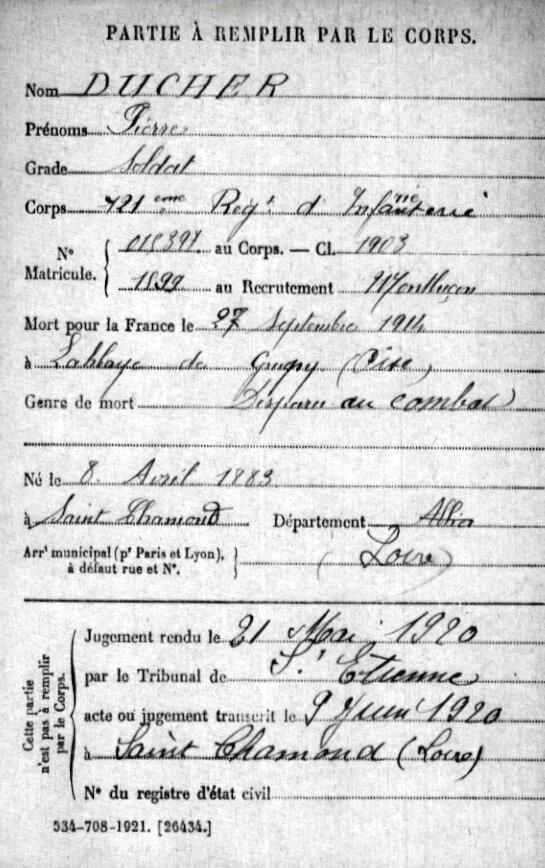 PARTIE À REMPLIR PAR LE CORPS.
Nom DUCHER
Prénoms Pierre
Grade Soldat
Corps 121 eme Regt d'Infanterie
N° Matricule. 015397 au Corps. — Cl. 1903
1899 au Recrutement Montluçon
Mort pour la France le 27 Septembre 1914
à Labbaye de (Oise)
Genre de mort Disparu au combat
Né le 8 Avril 1883
à Saint Chamond Département Allier
Arrt municipal (pr Paris et Lyon), à défaut rue et N°. (Loire)
Cette partie n'est pas à remplir par le Corps.
Jugement rendu le 21 Mai 1920
par le Tribunal de St Etienne
acte ou jugement transcrit le 9 Juin 1920
à Saint Chamond (Loire)
N° du registre d'état civil
534-708-1921. [26434.]